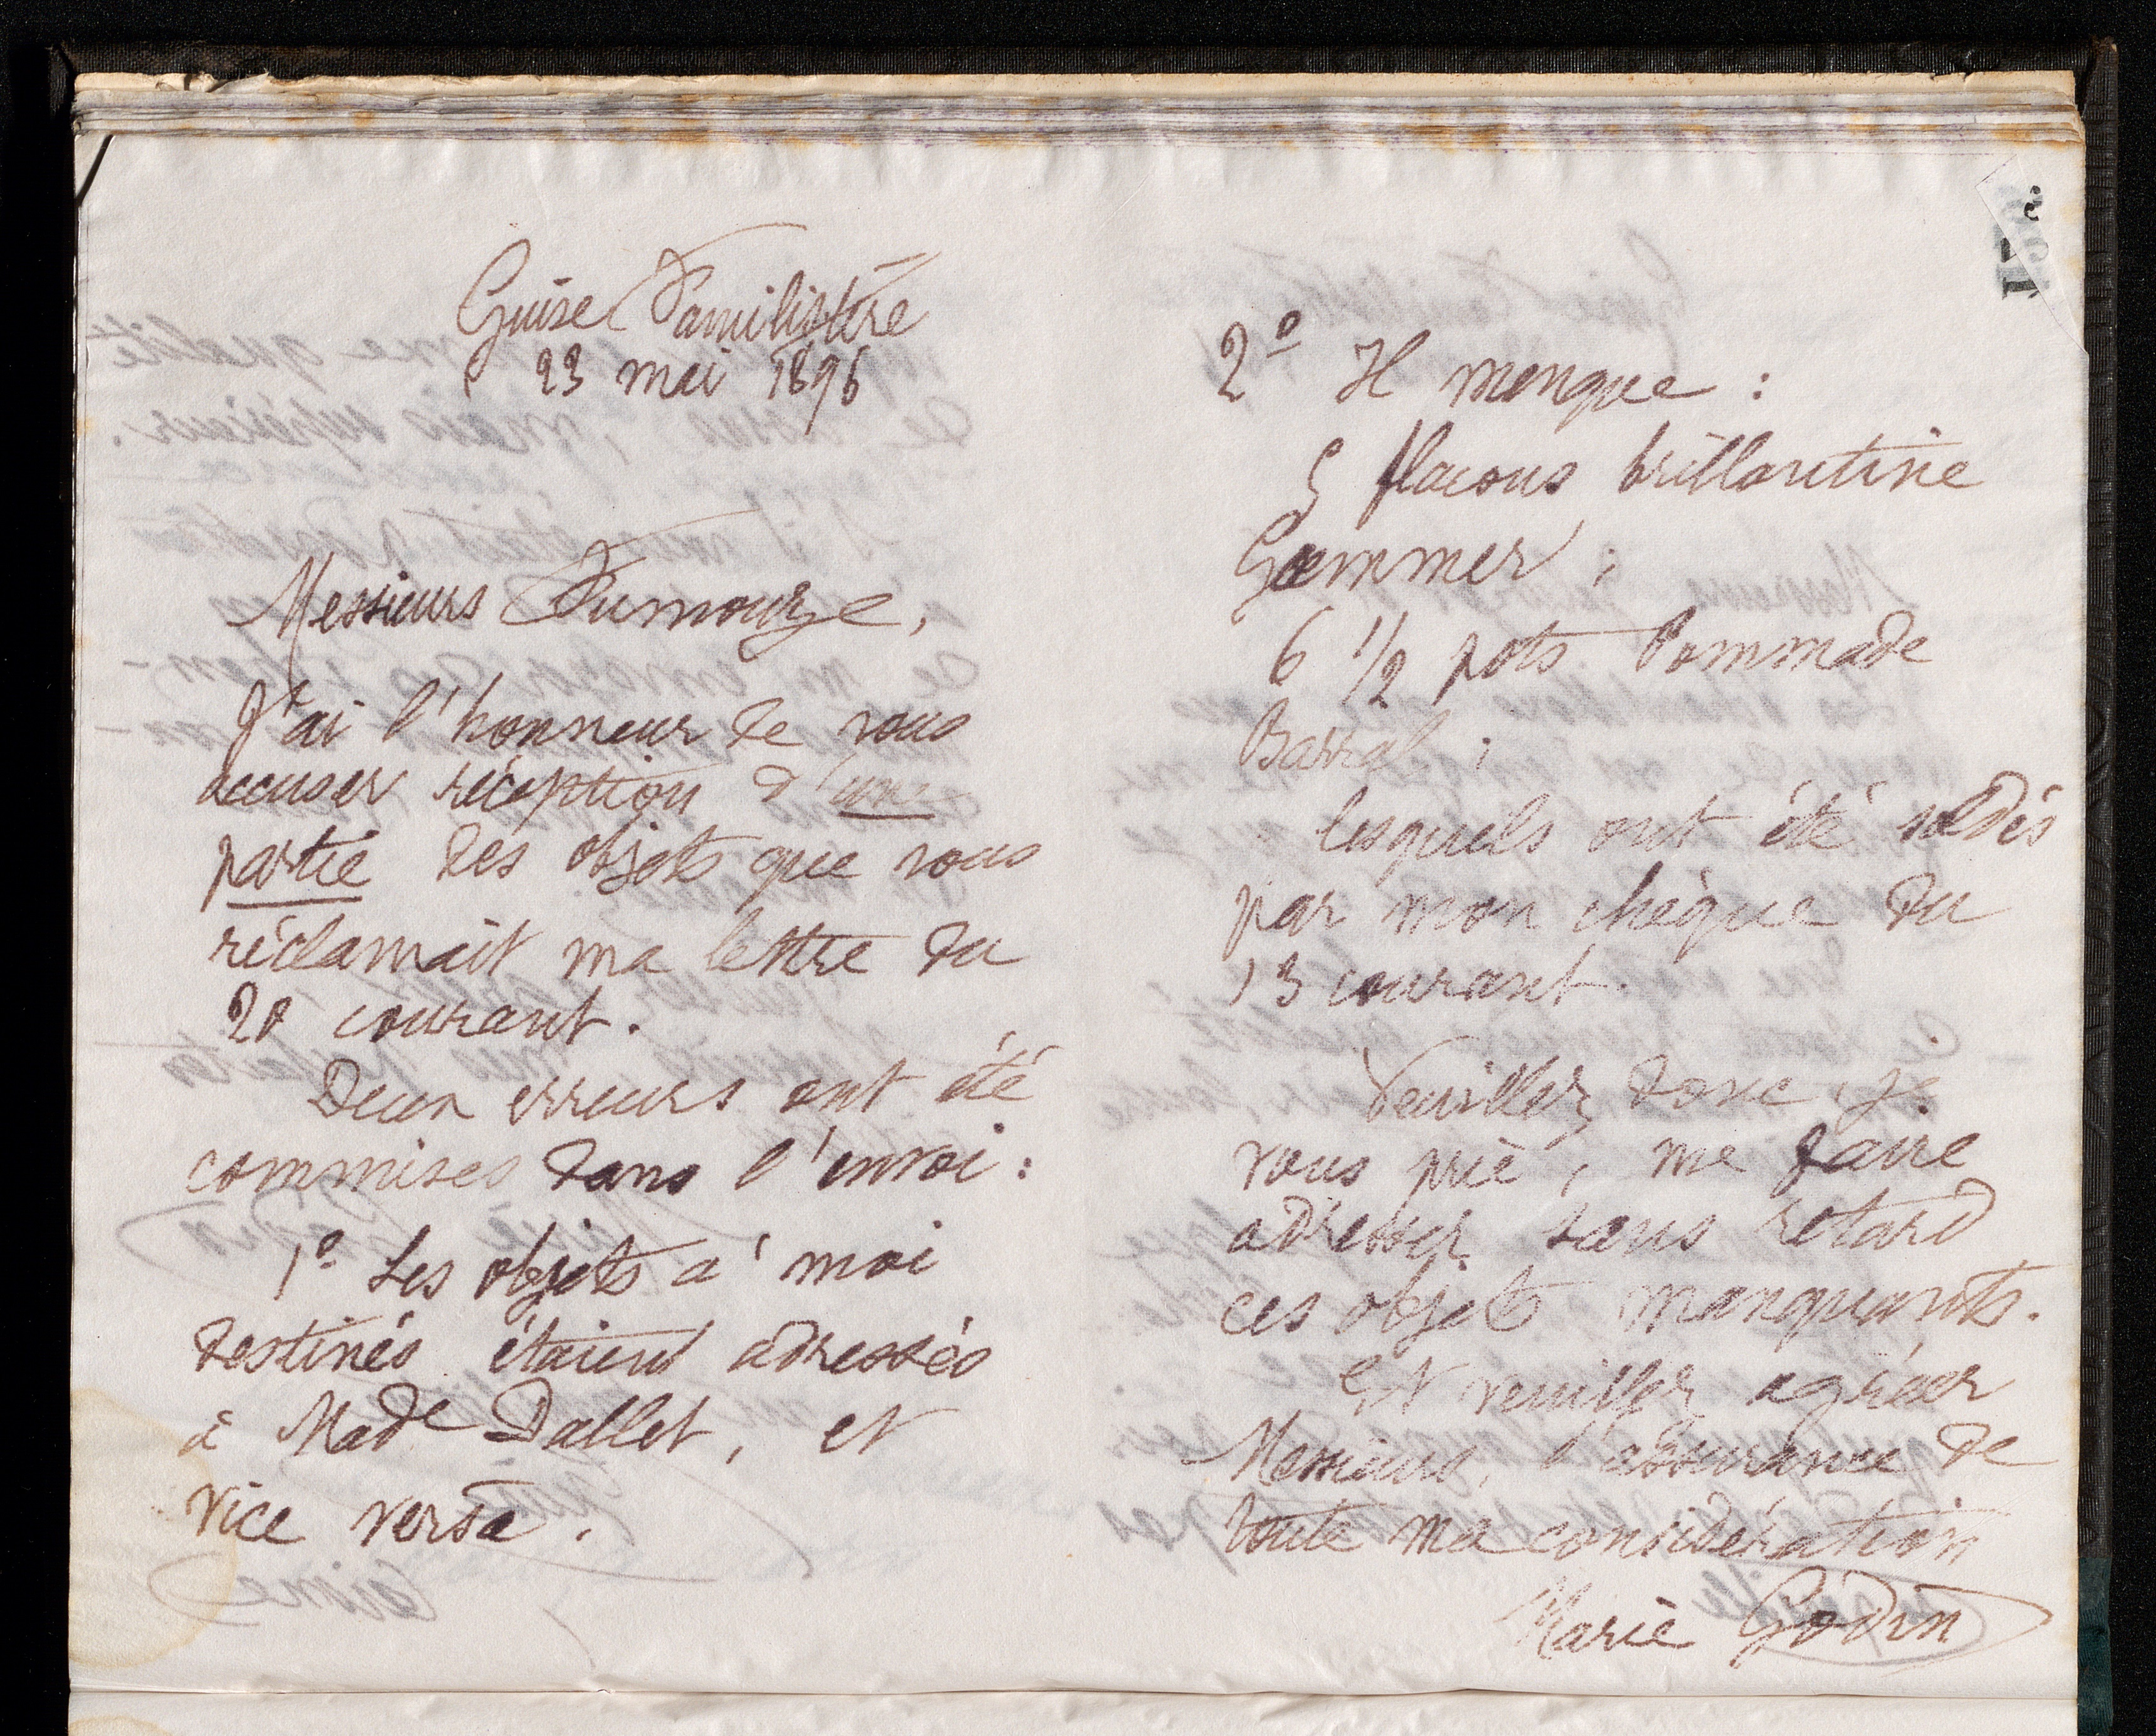 Guise Familistère
23 mai 1896
Messieurs Fumouze,
J'ai l'honneur de vous
accuser réception d'une
partie des objets que vous
réclamait ma lettre du
20 courant.
Deux erreurs ont été
commises dans l'envoi :
1º Les objets à moi
destinés étaient adressés
à Made Dallet, et
vice versa.
2º Il manque :
5 flacons brillantine
Gemmer ;
6 1/2 pots Pommade
Barral ;
lesquels ont été soldés
par mon chèque du
13 courant.
Veuillez donc, je
vous prie, me faire
adresser sans retard
ces objets manquants.
Et veuillez agréer
Messieurs, l'assurance de
toute ma considération
Marie Godin